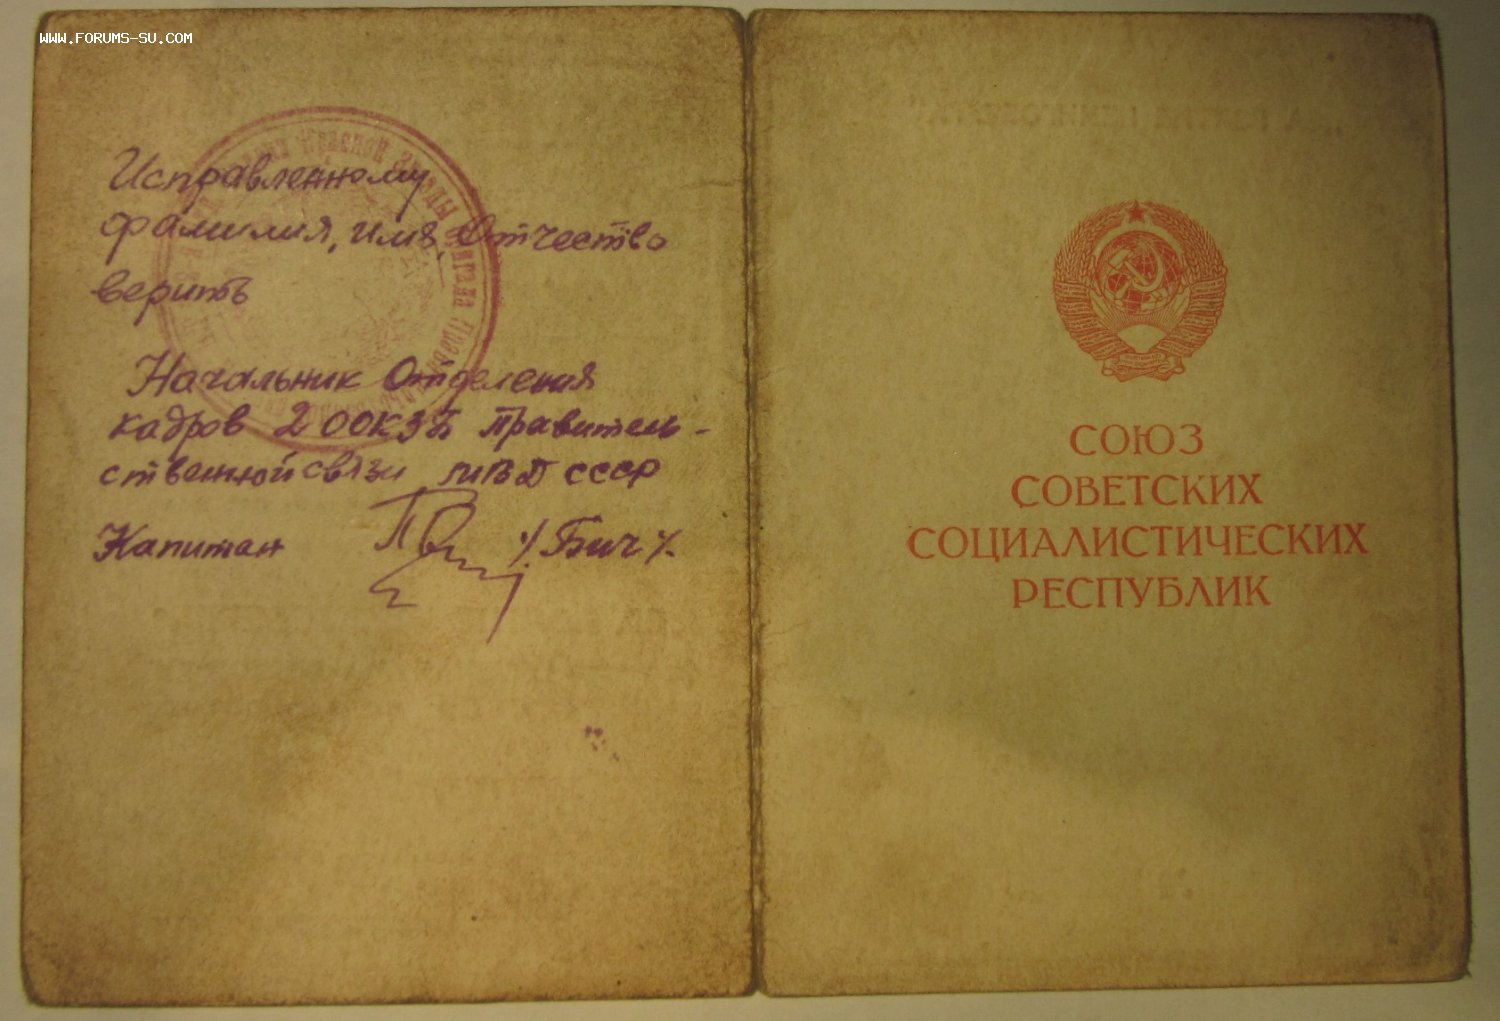 WWW.FORUMS-SU.COM
Исправленному
фамилия, имя, Отчество
верить
Начальник Отделения
кадров 2 ООКЗБ правитель-
ственной связи МВД СССР
Капитан /Бич/.
СОЮЗ
СОВЕТСКИХ
СОЦИАЛИСТИЧЕСКИХ
РЕСПУБЛИК